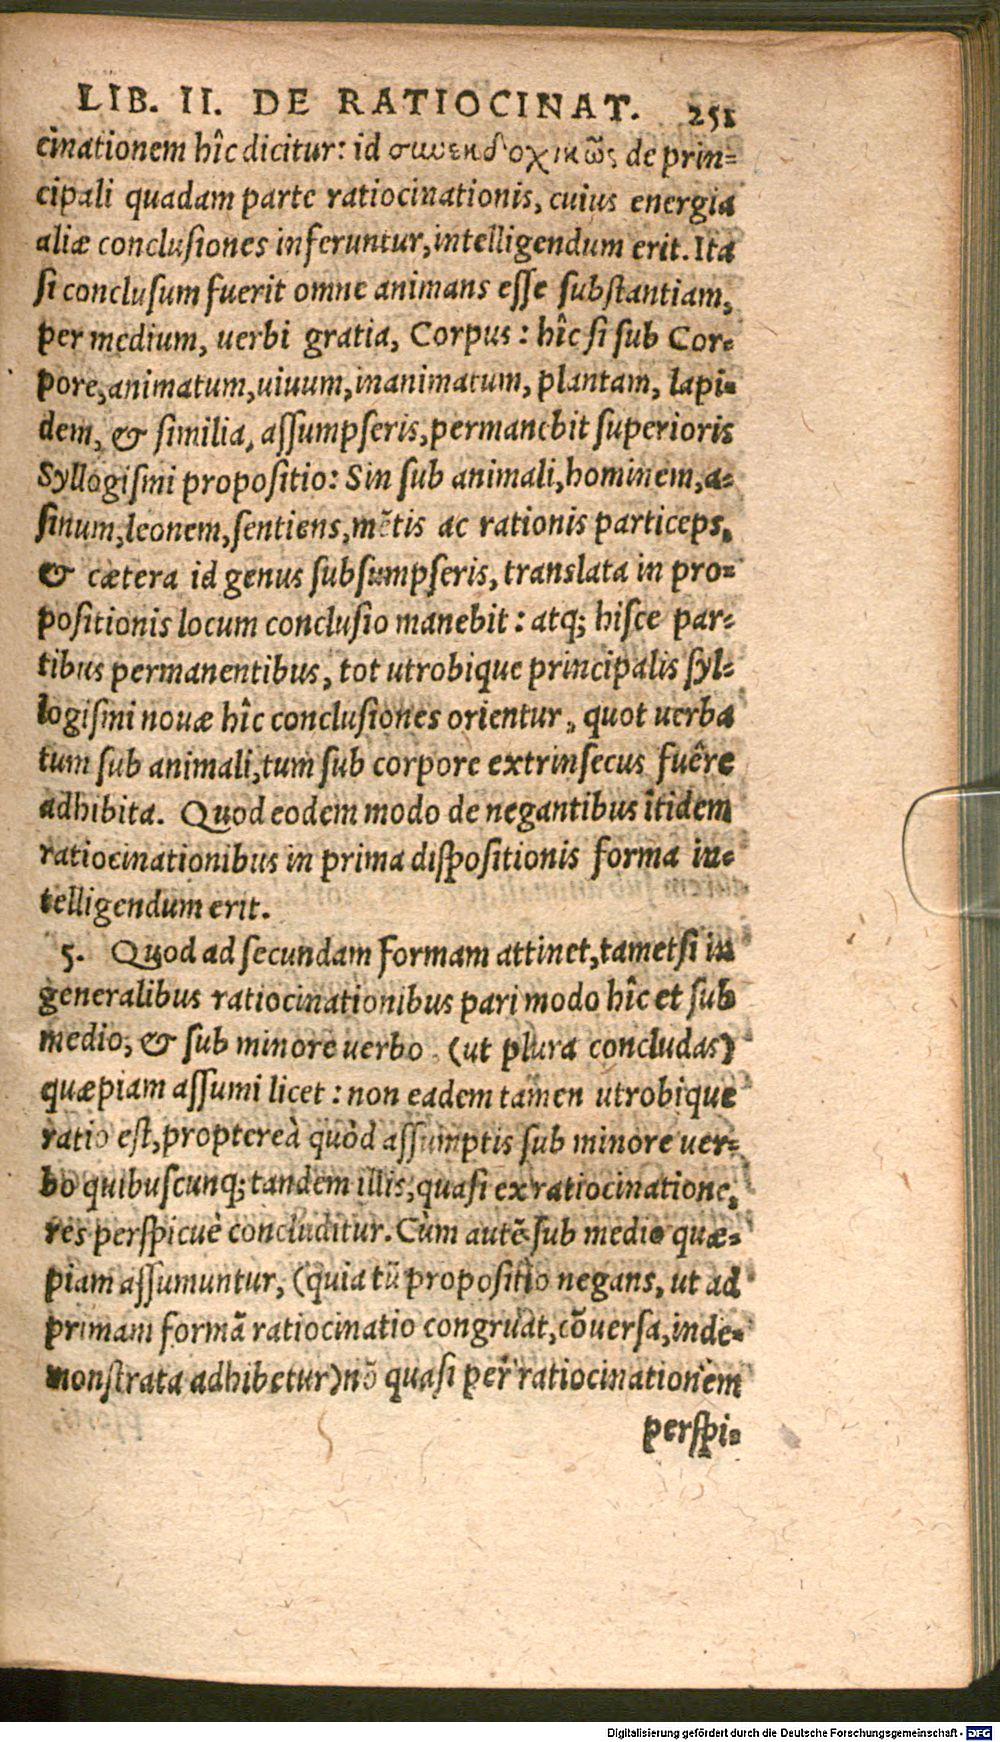 LIB. II. DE RATIOCINAT. 251
cinationem hîc dicitur: id συνεκδοχικῶς de prin=
cipali quadam parte ratiocinationis, cuius energia
aliæ conclusiones inferuntur, intelligendum erit. Ita
si conclusum fuerit omne animans esse substantiam,
per medium, uerbi gratia, Corpus: hîc si sub Cor=
pore, animatum, uiuum, inanimatum, plantam, lapi=
dem, & similia, assumpseris, permanebit superioris
Syllogismi propositio: Sin sub animali, hominem, a=
sinum, leonem, sentiens, mẽtis ac rationis particeps,
& cætera id genus subsumpseris, translata in pro=
positionis locum conclusio manebit: atq; hisce par=
tibus permanentibus, tot utrobique principalis syl=
logismi nouæ hîc conclusiones orientur, quot uerba
tum sub animali, tum sub corpore extrinsecus fuêre
adhibita. Quod eodem modo de negantibus îtidem
ratiocinationibus in prima dispositionis forma in=
telligendum erit.
5. Quod ad secundam formam attinet, tametsi in
generalibus ratiocinationibus pari modo hîc et sub
medio, & sub minore uerbo (ut plura concludas)
quæpiam assumi licet: non eadem tamen utrobique
ratio est, proptereà quòd assumptis sub minore uer=
bo quibuscunq; tandem illis, quasi ex ratiocinatione,
res perspicuè concluditur. Cùm autẽ sub medio quæ=
piam assumuntur, (quia tũ propositio negans, ut ad
primam formã ratiocinatio congruat, cõuersa, inde=
monstrata adhibetur) nõ quasi per ratiocinationem
perspi=
Digitalisierung gefördert durch die Deutsche Forschungsgemeinschaft - DFG